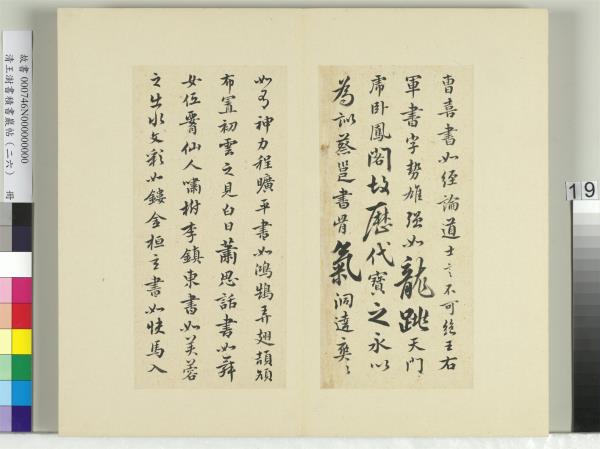 曹喜書如經論道士言不可絕王右
軍書字勢雄强如龍跳天門
虎卧鳳閣故歷代寶之永以
為訓蔡邕書骨氣洞達爽〻
如有神力程曠平書如鴻鵠弄翅頡頏
布置初雲之見白日蕭思話書如舞
女低腰仙人嘯樹李鎮東書如芙蓉
之出水文彩如鏤金桓玄書如快馬入
故書000746N000000000
清王澍書積書巖帖（二六） 冊
19